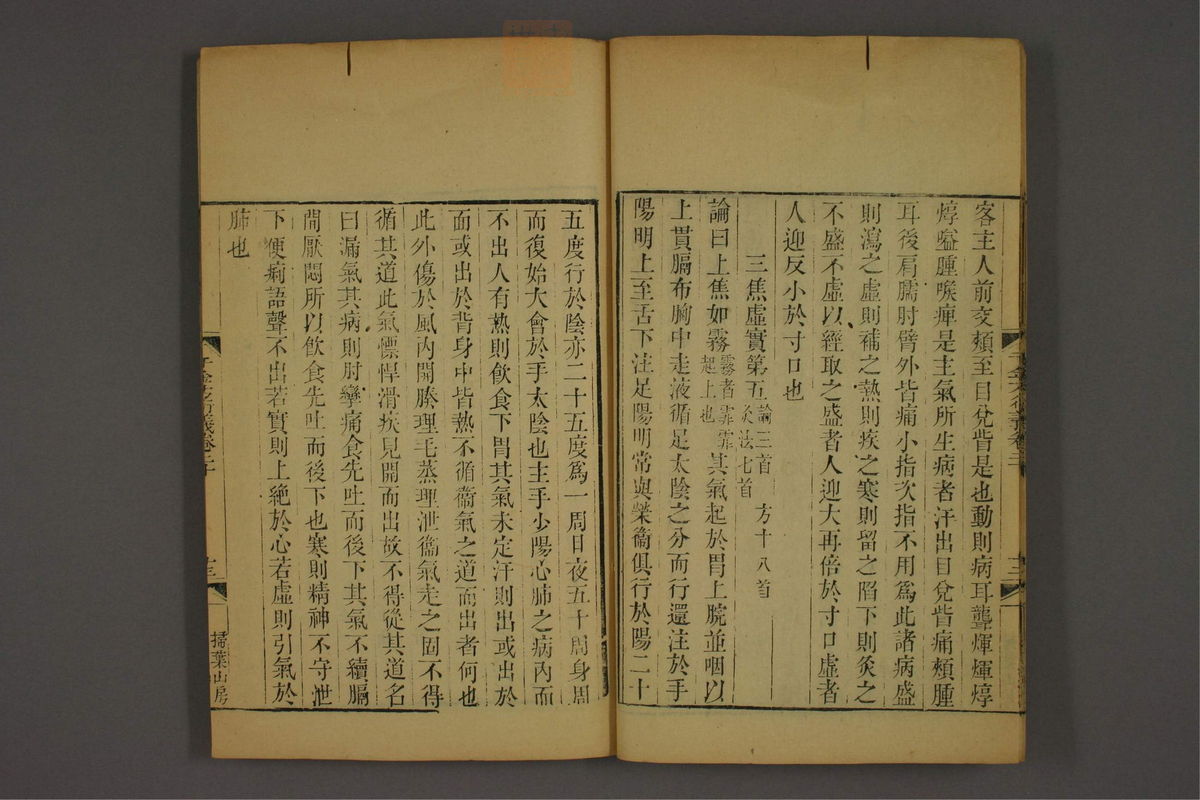 客主人前交頰至目兌眥是也動則病耳聾煇煇焞
焞嗌腫喉痺是主氣所生病者汗出目兌眥痛頰腫
耳後肩臑肘臂外皆痛小指次指不用爲此諸病盛
則瀉之虛則補之熱則疾之寒則留之陷下則灸之
不盛不虛以經取之盛者人迎大再倍於寸口虛者
人迎反小於寸口也
三焦虛實第五論三首 方十八首
灸法七首
論曰上焦如霧霧者霏霏
起上也其氣起於胃上脘並咽以
上貫膈布胸中走液循足太陰之分而行還注於手
陽明上至舌下注足陽明常與榮衞俱行於陽二十
五度行於陰亦二十五度爲一周日夜五十周身周
而復始大會於手太陰也主手少陽心肺之病內而
不出人有熱則飲食下胃其氣未定汗則出或出於
面或出於背身中皆熱不循衞氣之道而出者何也
此外傷於風內開腠理毛蒸理泄衞氣走之固不得
循其道此氣慓悍滑疾見開而出故不得從其道名
曰漏氣其病則肘攣痛食先吐而後下其氣不續膈
閒厭悶所以飲食先吐而後下也寒則精神不守泄
下便痢語聲不出若實則上絶於心若虛則引氣於
肺也
千金方衍義卷二十
十三
掃葉山房